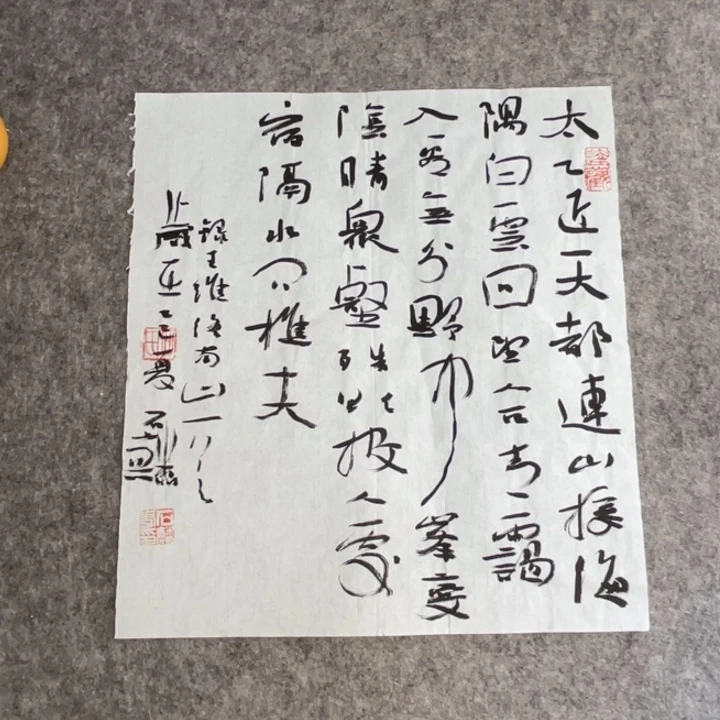 太乙近天都連山接海
隅白雲回望合青靄
入看無分野中峯變
陰晴衆壑殊欲投人處
宿隔水问樵夫
錄王維終南山一
歲在乙巳夏